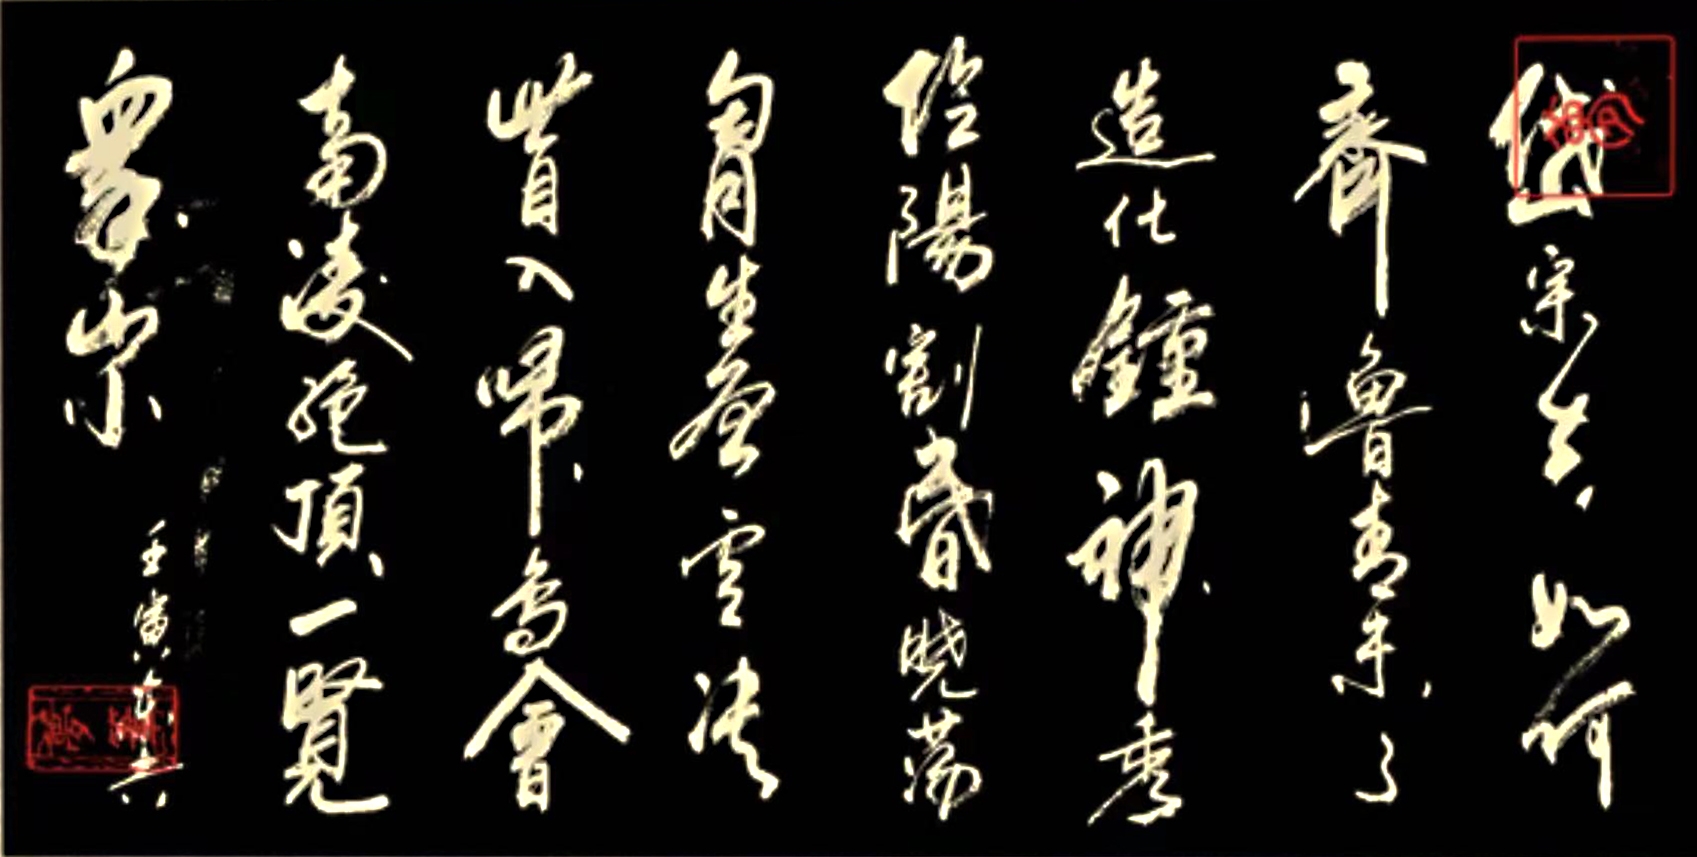 岱宗夫如何
齊魯青未了
造化鍾神秀
陰陽割昬曉蕩
胷生層雲決
眥入歸鳥會
當凌絕頂一覽
衆山小
壬寅